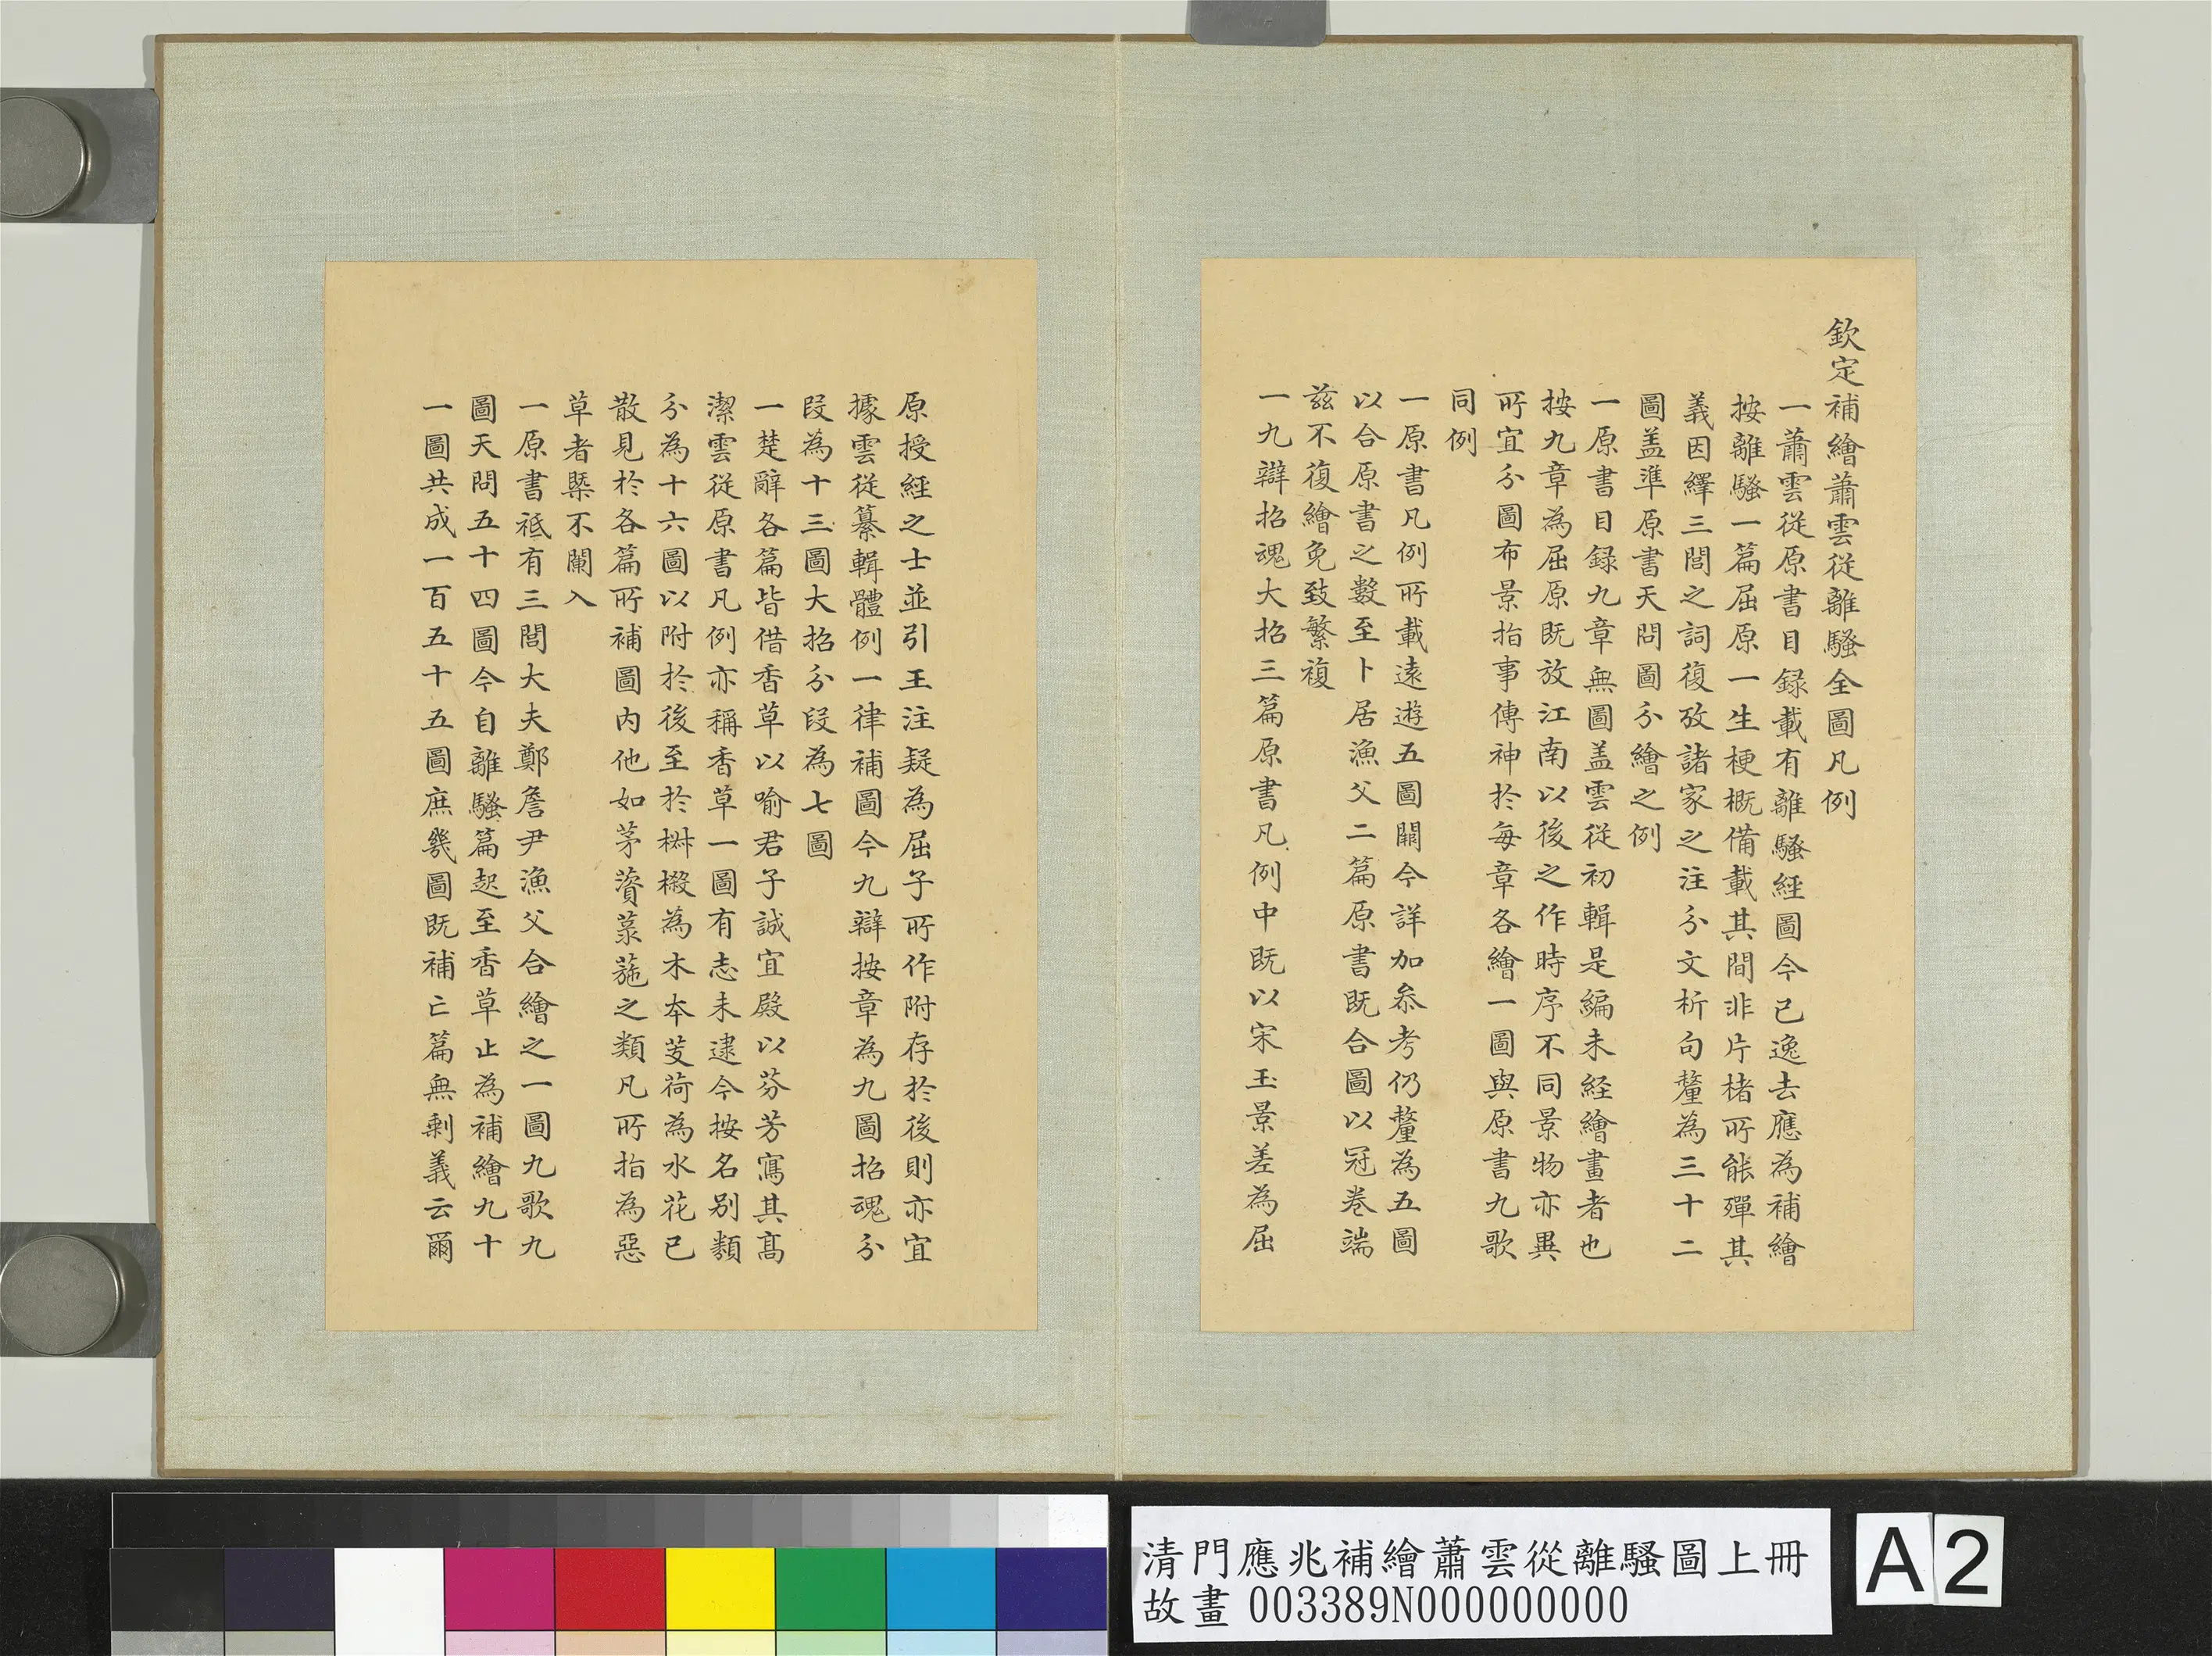 欽定補繪蕭雲從離騷全圖凡例
一蕭雲從原書目録載有離騷経圖今已逸去應為補繪
按離騷一篇屈原一生梗概備載其間非片楮所能殫其
義因繹三閭之詞復攷諸家之注分文析句釐為三十二
圖盖準原書天問圖分繪之例
一原書目録九章無圖盖雲從初輯是編未経繪畫者也
按九章為屈原既放江南以後之作時序不同景物亦異
所宜分圖布景指事傳神於每章各繪一圖與原書九歌
同例
一原書凡例所載遠遊五圖闕今詳加叅考仍釐為五圖
以合原書之數至卜居漁父二篇原書既合圖以冠卷端
兹不復繪免致繁複
一九辯招魂大招三篇原書凡例中既以宋玉景差為屈
原授経之士並引王注疑為屈子所作附存於後則亦宜
據雲從纂輯體例一律補圖今九辯按章為九圖招魂分
段為十三圖大招分段為七圖
一楚辭各篇皆借香草以喻君子誠宜殿以芬芳寫其高
潔雲從原書凡例亦稱香草一圖有志未逮今按名別類
分為十六圖以附於後至於椒樧為木本芰荷為水花已
散見於各篇所補圖内他如茅薋菉葹之類凡所指為惡
草者槩不闌入
一原書祗有三閭大夫鄭詹尹漁父合繪之一圖九歌九
圖天問五十四圖今自離騷篇起至香草止為補繪九十
一圖共成一百五十五圖庶幾圖既補亡篇無剩義云爾
清門應兆補繪蕭雲從離騷圖上冊
故畫 003389N000000000
A2